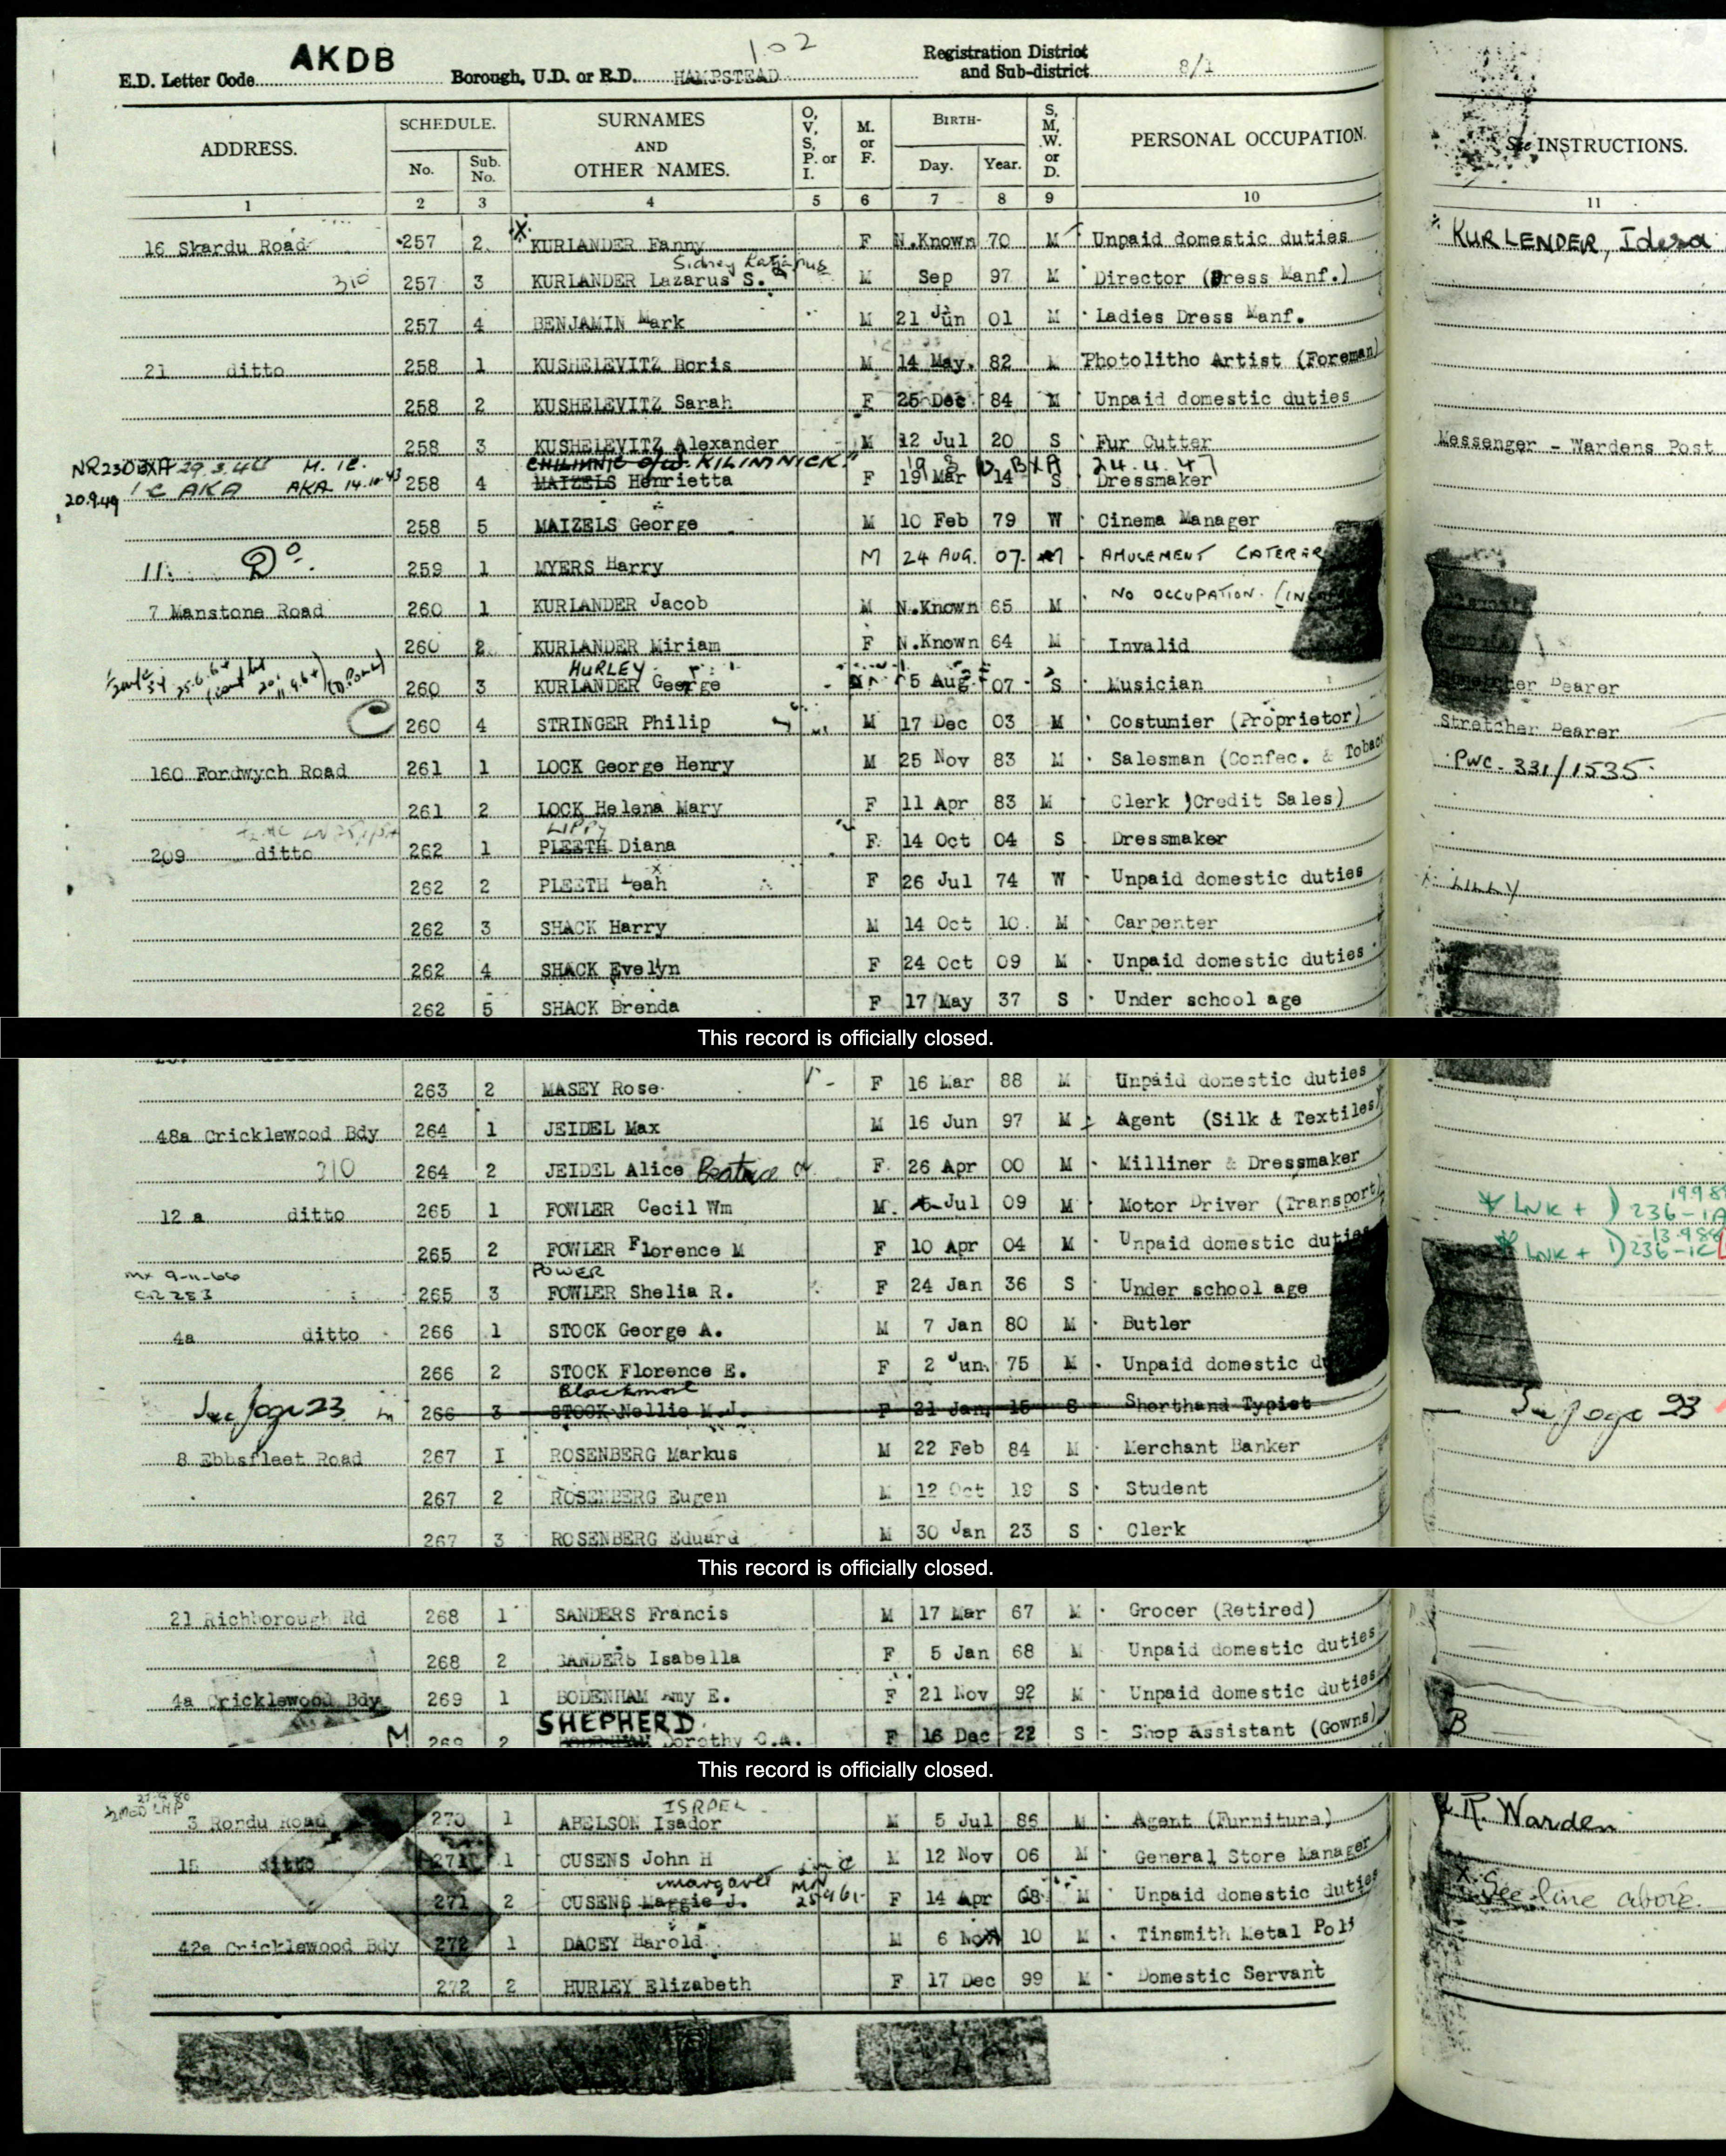 AKDB 102
Registration District
E.D. Letter Code Borough, U.D. or R.D. HAMPSTEAD and Sub-district 8/1
ADDRESS. SCHEDULE. No. Sub. No. SURNAMES AND OTHER NAMES. O, V, S, P. or I. M. or F. BIRTH- Day. Year. S, M, W. or D. PERSONAL OCCUPATION. See INSTRUCTIONS.
1 2 3 4 5 6 7 8 9 10 11
16 Skardu Road 257 2 X KURLANDER Fanny F N.Known 70 M Unpaid domestic duties KURLENDER, Idesa
Sidney
310 257 3 KURLANDER Lazarus S. M Sep 97 M Director (Dress Manf.)
257 4 BENJAMIN Mark M 21 Jun 01 M Ladies Dress Manf.
21 ditto 258 1 KUSHELEVITZ Boris M 14 May. 82 M Photolitho Artist (Foreman)
258 2 KUSHELEVITZ Sarah F 25 Dec 84 M Unpaid domestic duties
258 3 KUSHELEVITZ Alexander M 12 Jul 20 S Fur Cutter Messenger - Wardens Post
29.3.40 KILIMNICK 24.4.47
20.9.49 AKA AKA 14.10.43 258 4 MAIZELS Henrietta F 19 Mar 14 S Dressmaker
258 5 MAIZELS George M 10 Feb 79 W Cinema Manager
11. Do. 259 1 MYERS Harry M 24 AUG. 07. M AMUSEMENT CATERER
7 Manstone Road 260 1 KURLANDER Jacob M N.Known 65 M NO OCCUPATION.
260 2 KURLANDER Miriam F N.Known 64 M Invalid
HURLEY
260 3 KURLANDER George 5 Aug 07 S Musician Stretcher Bearer
260 4 STRINGER Philip M 17 Dec 03 M Costumier (Proprietor) Stretcher Bearer
160 Fordwych Road 261 1 LOCK George Henry M 25 Nov 83 M Salesman (Confec. & Tobac PWC. 331/1535
261 2 LOCK Helena Mary F 11 Apr 83 M Clerk )Credit Sales)
LIPPY
209 ditto 262 1 PLEETH Diana F 14 Oct 04 S Dressmaker
262 2 PLEETH Leah F 26 Jul 74 W Unpaid domestic duties X LILLY
262 3 SHACK Harry M 14 Oct 10. M Carpenter
262 4 SHACK Evelyn F 24 Oct 09 M Unpaid domestic duties
262 5 SHACK Brenda F 17 May 37 S Under school age
This record is officially closed.
263 2 MASEY Rose F 16 Mar 88 M Unpaid domestic duties
48a Cricklewood Bdy 264 1 JEIDEL Max M 16 Jun 97 M Agent (Silk & Textiles)
310 264 2 JEIDEL Alice Beatrice F 26 Apr 00 M Milliner & Dressmaker
12 a ditto 265 1 FOWLER Cecil Wm M. 5 Jul 09 M Motor Driver (Transport)
265 2 FOWLER Florence M F 10 Apr 04 M Unpaid domestic duties
POWER
CR283 265 3 FOWLER Shelia R. F 24 Jan 36 S Under school age
4a ditto 266 1 STOCK George A. M 7 Jan 80 M Butler
266 2 STOCK Florence E. F 2 Jun. 75 M Unpaid domestic d
Blackmore
See page 23 266 3 STOCK Nellie M.J. F 21 Jan 15 S Shorthand Typist See page 23
8 Ebbsfleet Road 267 I ROSENBERG Markus M 22 Feb 84 M Merchant Banker
267 2 ROSENBERG Eugen M 12 Oct 19 S Student
267 3 ROSENBERG Eduard M 30 Jan 23 S Clerk
This record is officially closed.
21 Richborough Rd 268 1 SANDERS Francis M 17 Mar 67 M Grocer (Retired)
268 2 SANDERS Isabella F 5 Jan 68 M Unpaid domestic duties
4a Cricklewood Bdy 269 1 BODENHAM Amy E. F 21 Nov 92 M Unpaid domestic duties
SHEPHERD
M 269 2 Dorothy C.A. F 16 Dec 22 S Shop Assistant (Gowns) B
This record is officially closed.
ISRAEL
3 Rondu Road 270 1 ABELSON Isador M 5 Jul 86 M Agent (Furniture) Warden
15 ditto 271 1 CUSENS John H M 12 Nov 06 M General Store Manager
Margaret
271 2 CUSENS Maggie J. F 14 Apr 08 M Unpaid domestic duties See line above.
42a Cricklewood Bdy 272 1 DACEY Harold M 6 Nov 10 M Tinsmith Metal Poli
272 2 HURLEY Elizabeth F 17 Dec 99 M Domestic Servant